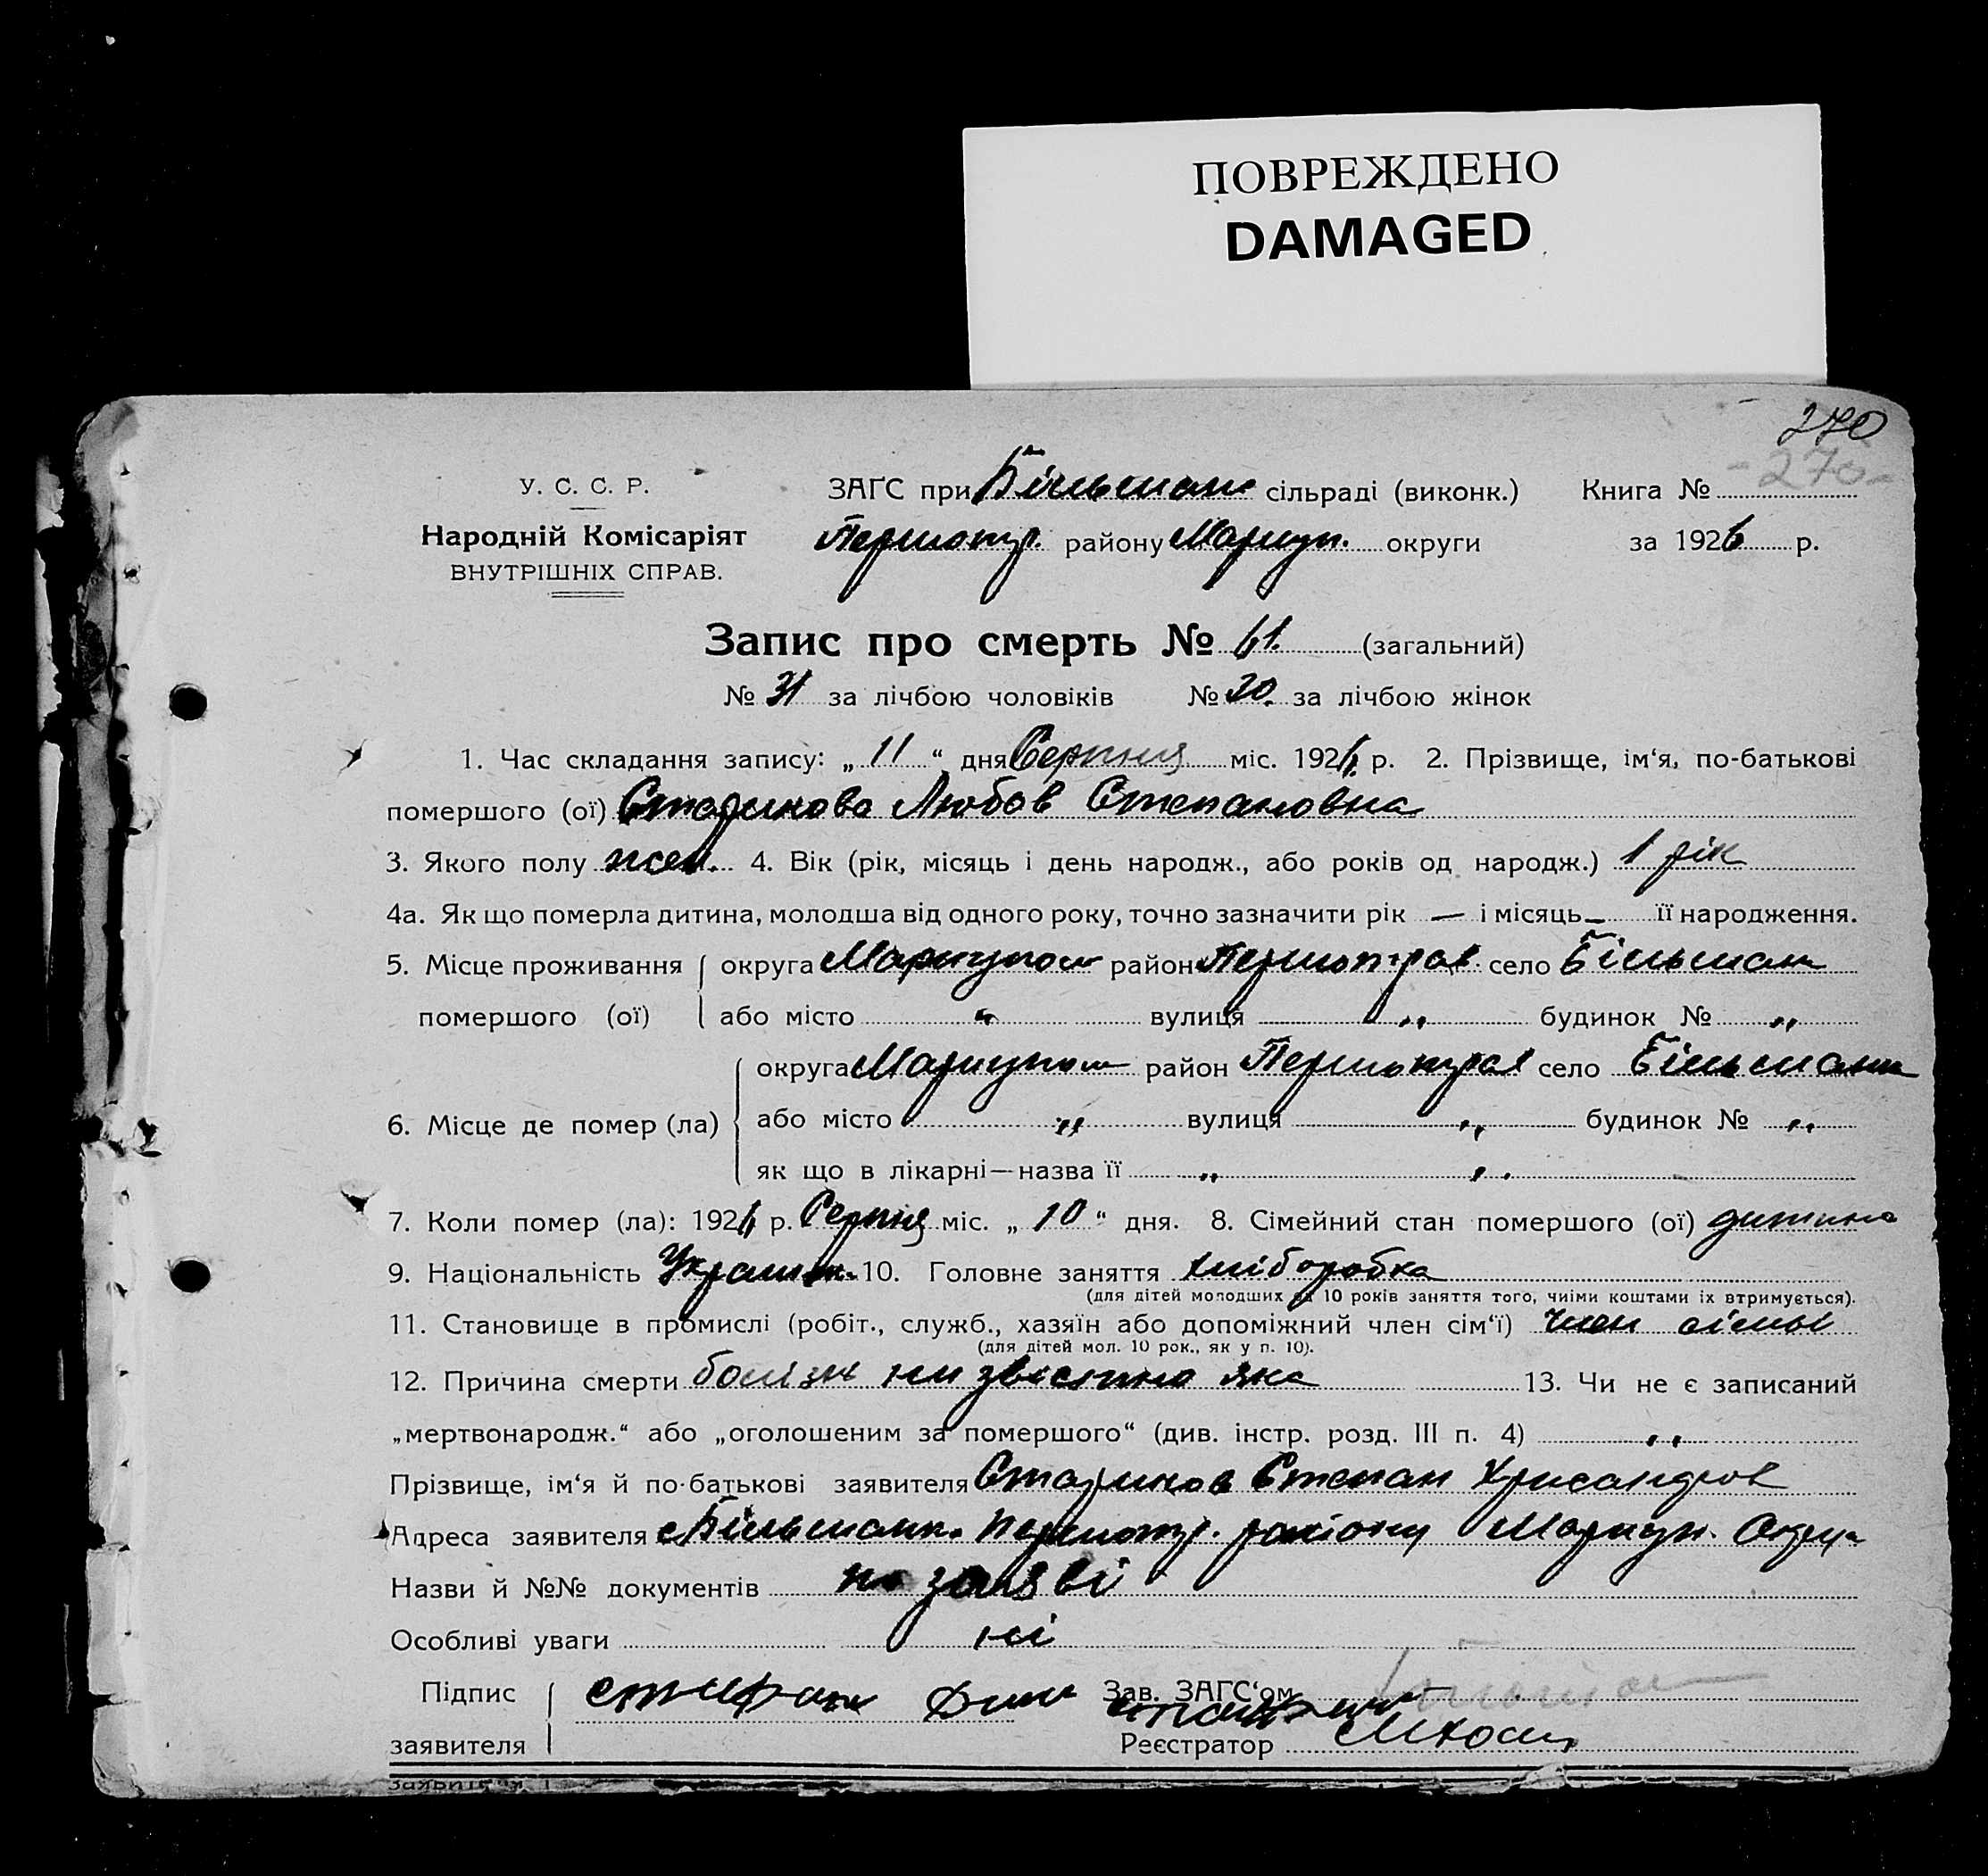 ПОВРЕЖДЕНО
DAMAGED
270
-270-
У. С. С. Р.
Народній Комісаріят
ВНУТРІШНІХ СПРАВ.
ЗАГС при Більшан. сільраді (виконк.) Книга №
Першотр. району Мариуп. округи за 1926 р.
Запис про смерть № 61. (загальний)
№ 31 за лічбою чоловіків № 30. за лічбою жінок
1. Час складання запису: „ 11 “ дня Серпня міс. 1926 р. 2. Прізвище, ім‘я, по-батькові
помершого (ої) Старикова Любов Степановна
3. Якого полу жен. 4. Вік (рік, місяць і день народж., або років од народж.) 1 рік
4а. Як що померла дитина, молодша від одного року, точно зазначити рік — і місяць — її народження.
5. Місце проживання округа Мариупол район Першотрав село Більшан
помершого (ої) або місто „ вулиця „ будинок № „
округа Мариупол район Першотрав село Більшанк
6. Місце де помер (ла) або місто „ вулиця „ будинок № „
як що в лікарні—назва її „ „
7. Коли помер (ла): 1926 р. Серпня міс. „ 10 “ дня. 8. Сімейний стан помершого (ої) дитина
9. Національність Украин. 10. Головне заняття хліборобка
(для дітей молодших од 10 років заняття того, чиїми коштами їх втримується).
11. Становище в промислі (робіт., служб., хазяїн або допоміжний член сім‘ї) член сімьї
(для дітей мол. 10 рок., як у п. 10).
12. Причина смерти болізнь низвістно яка 13. Чи не є записаний
„мертвонародж.“ або „оголошеним за помершого“ (див. інстр. розд. III п. 4) „
Прізвище, ім‘я й по-батькові заявителя Стариков Степан Хрисандров
Адреса заявителя с Більшанк. Першотр. району Мариуп. Окру
Назви й №№ документів по заяві
Особливі уваги ні
Підпис
заявителя
Зав. ЗАГС‘ом
Реєстратор
заявителя